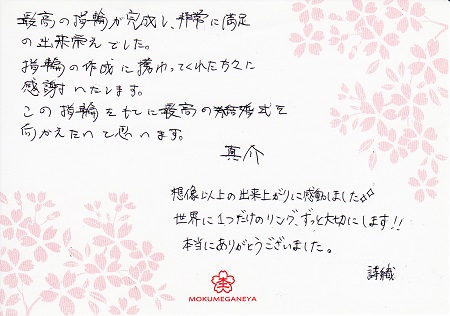 最高の指輪が完成し、非常に満足
の出来栄えでした。
指輪の作成に携わってくれた方々に
感謝いたします。
この指輪をもとに最高の結婚式を
向かえたいと思います。
真介
想像以上の出来上がりに感動しました♪
世界に1つだけのリング、ずっと大切にします!!
本当にありがとうございました。
詩織
MOKUMEGANEYA